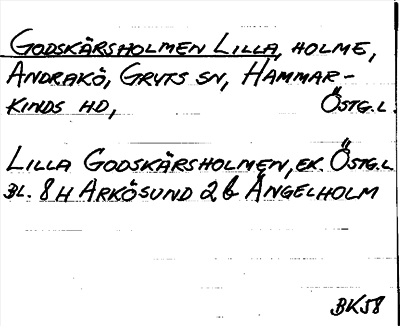 GODSKÄRSHOLMEN LILLA, HOLME,
ANDRAKÖ, GRYTS SN, HAMMAR-
KINDS HD, ÖSTG.L.
LILLA GODSKÄRSHOLMEN, EK. ÖSTG.L
BL. 8H ARKÖSUND 2b ÄNGELHOLM
BK58